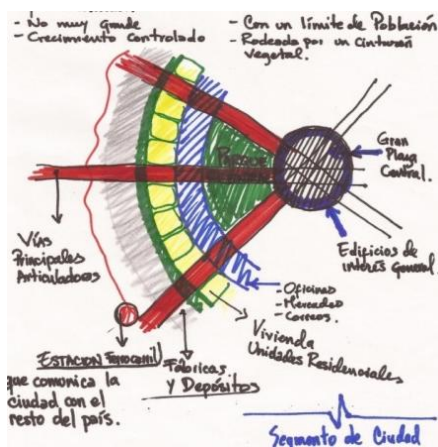 - No muy grande
- Crecimiento Controlado
- Con un límite de Población
- Rodeada por un Cinturón
Vegetal.
Gran
Plaza
Central.
Edificios de
interés General
Vías
Principales
Articuladoras
- Oficinas
- Mercados
- Correos.
Vivienda
Unidades Residenciales
ESTACION Ferrocarril
que comunica la
ciudad con el
resto del país.
Fábricas
y Depósitos
Segmento de Ciudad